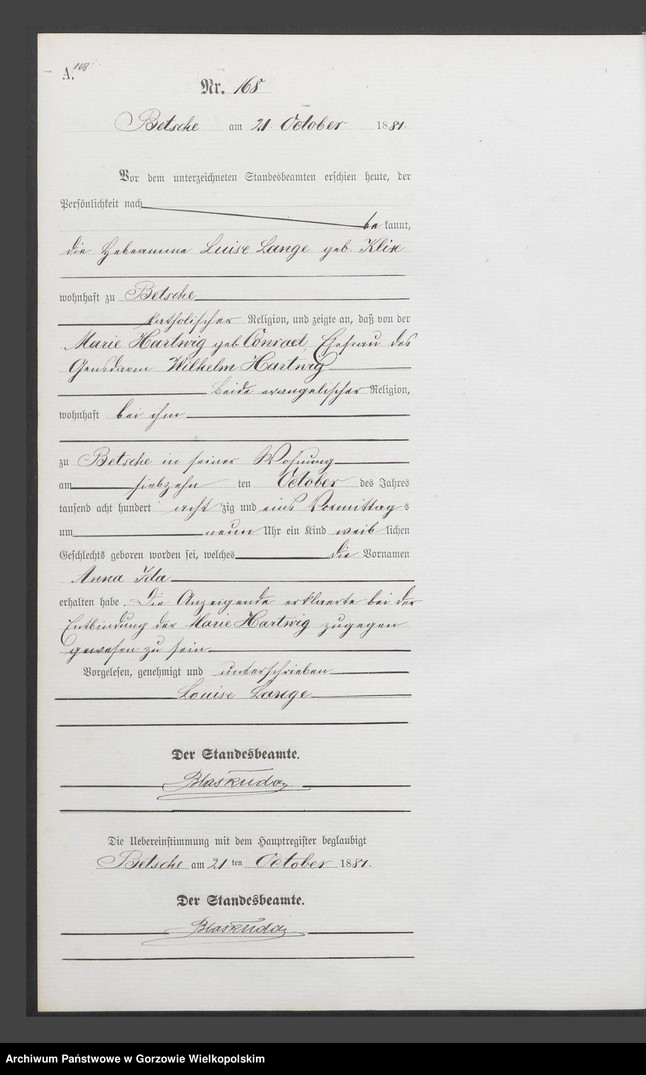 A. 168
Nr. 165
Betsche am 21 October 1881.
Vor dem unterzeichneten Standesbeamten erschien heute, der
Persönlichkeit nach
be kannt,
die Hebeamme Luise Lange geb. Klix
wohnhaft zu Betsche
katholischer Religion, und zeigte an, daß von der
Marie Hartwig geb Conrad, Ehefrau des
Gensdarm Wilhelm Hartwig
beide evangelischer Religion,
wohnhaft bei ihm
zu Betsche in seiner Wohnung
am siebzehn ten October des Jahres
tausend acht hundert acht zig und eins Vormittag s
um neun Uhr ein Kind weib lichen
Geschlechts geboren worden sei, welches die Vornamen
Anna Ida
erhalten habe. Die Anzeigende erklaerte bei der
Entbindung der Marie Hartwig zugegen
gewesen zu sein.
Vorgelesen, genehmigt und unterschrieben
Louise Lange
Der Standesbeamte.
Blaskuda
Die Uebereinstimmung mit dem Hauptregister beglaubigt
Betsche am 21 ten October 1881.
Der Standesbeamte.
Blaskuda
Archiwum Państwowe w Gorzowie Wielkopolskim